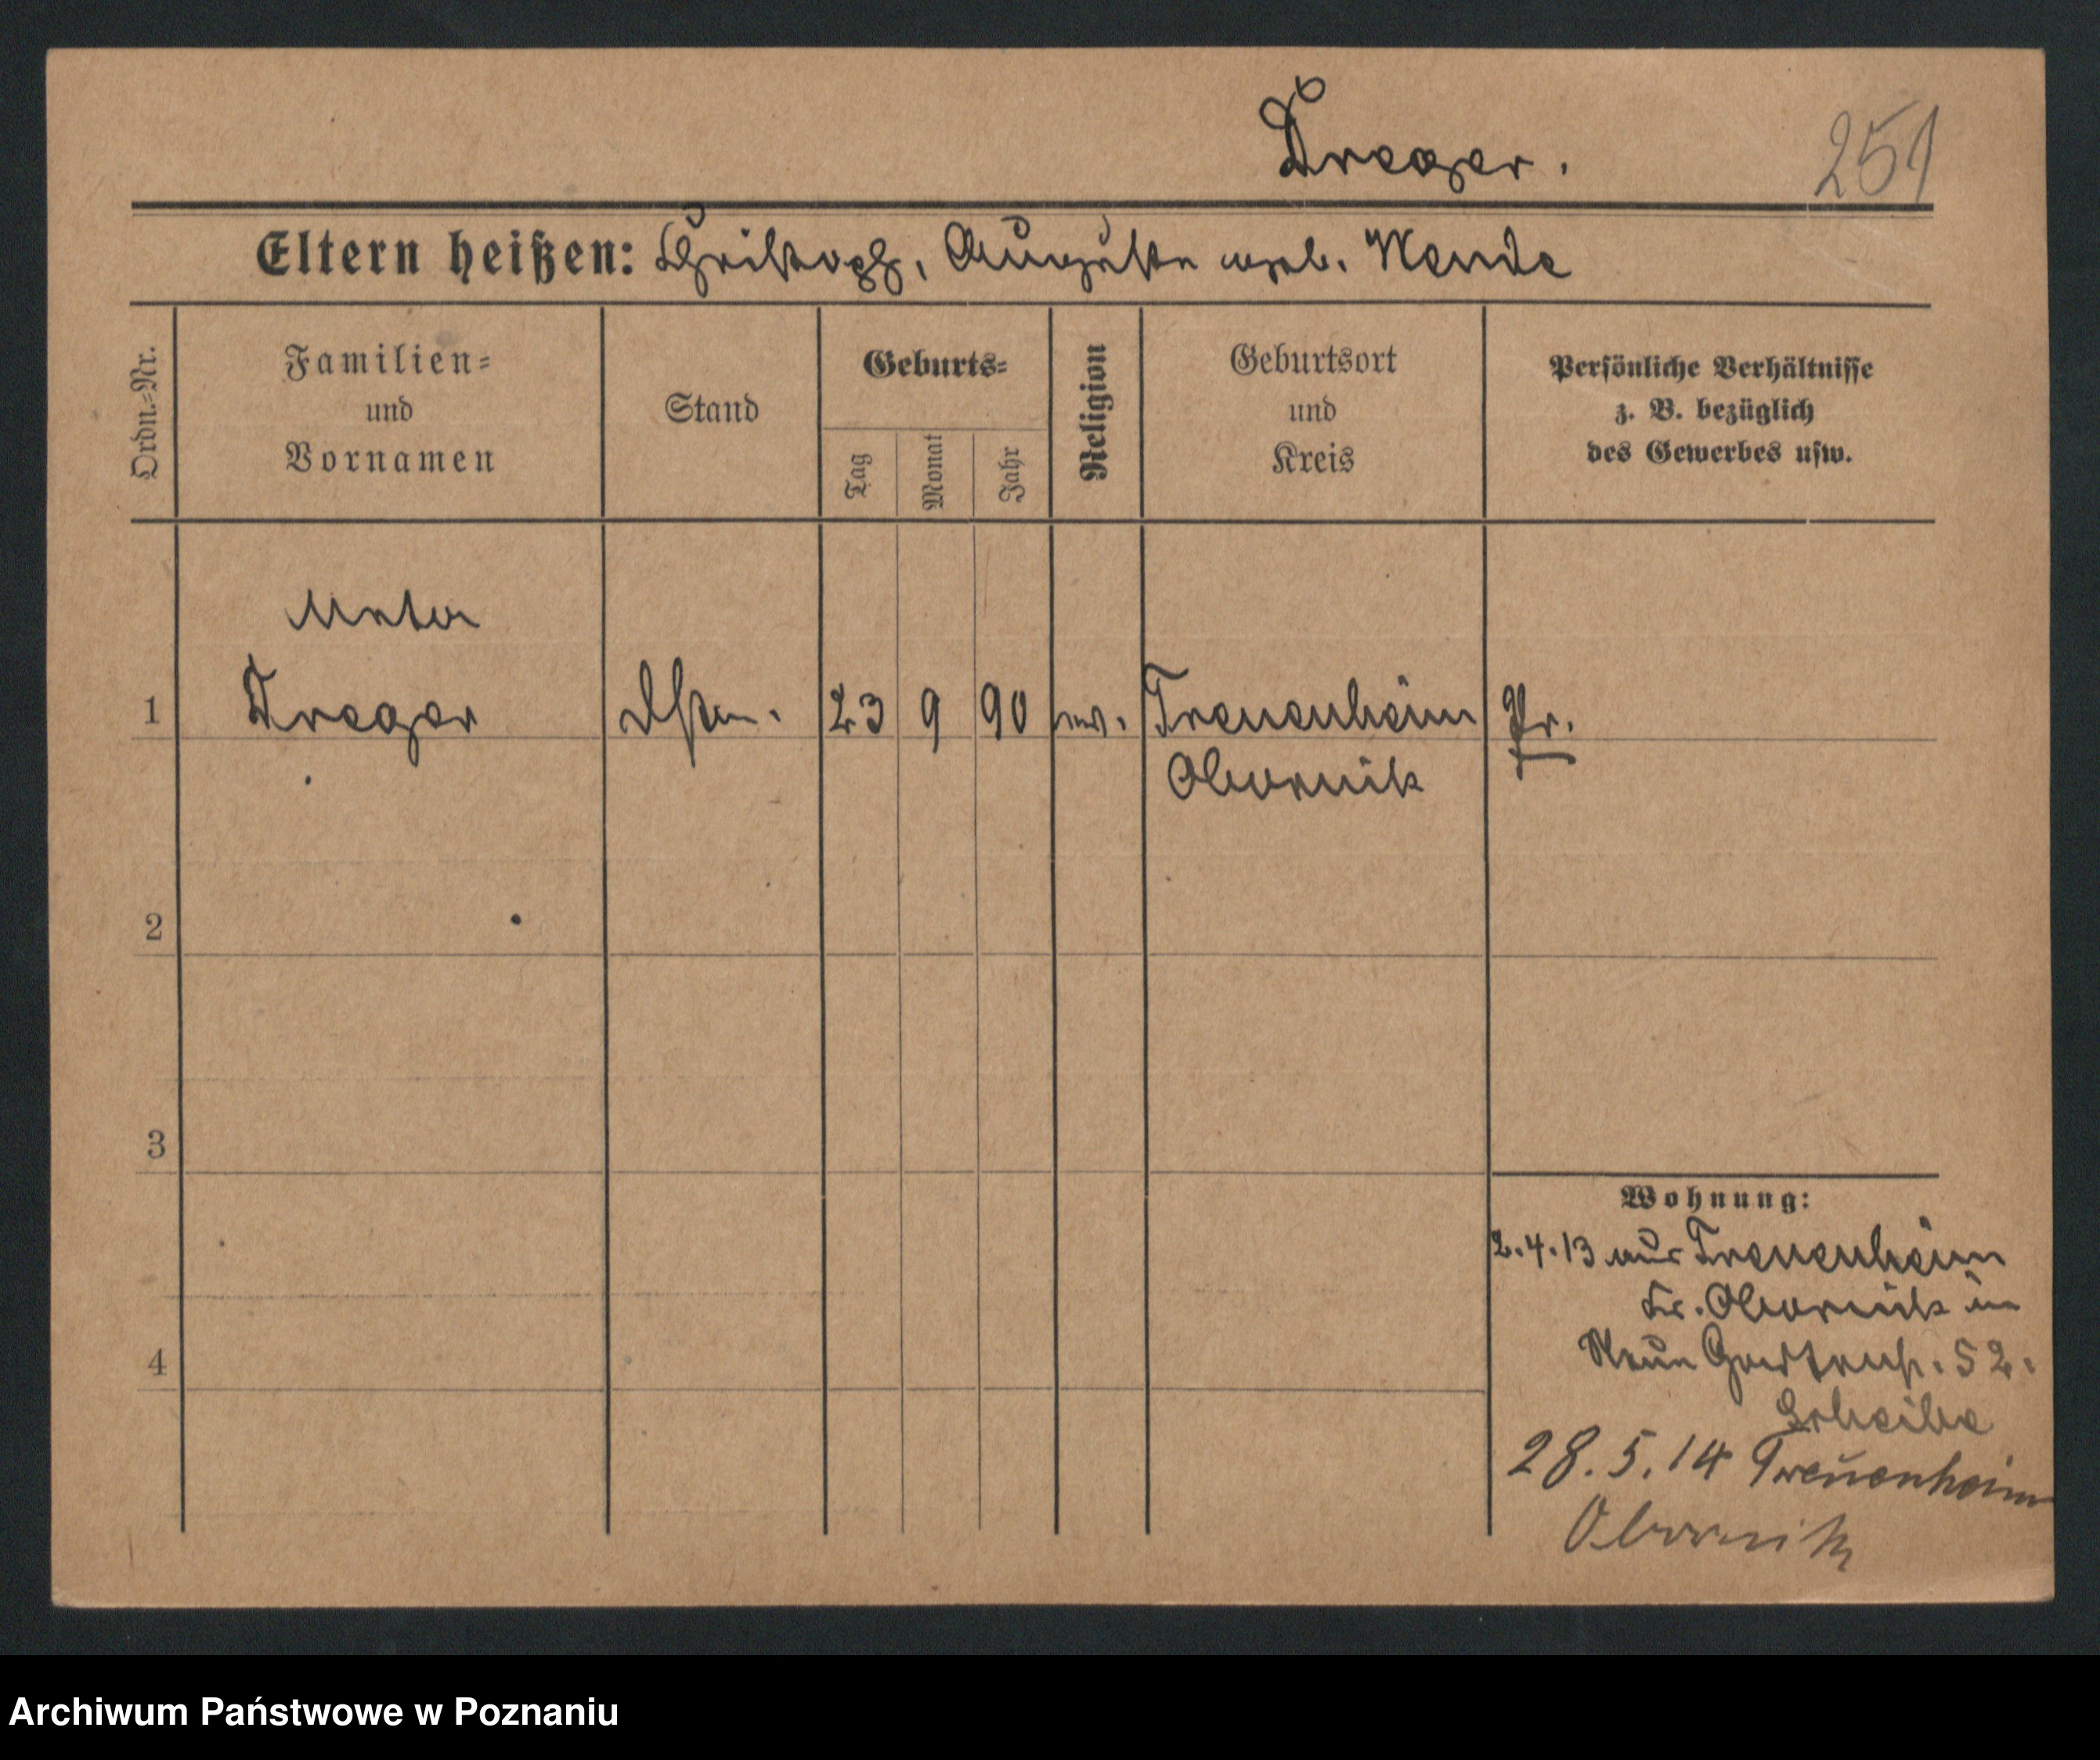 Dreger.
251
Eltern heißen: Christoph, Auguste geb. Wende
Ordn.-Nr.
Familien-
und
Vornamen
Stand
Geburts-
Tag
Monat
Jahr
Religion
Geburtsort
und
Kreis
Persönliche Verhältnisse
z. B. bezüglich
des Gewerbes usw.
Marta
1 Dreger 23 9 90 ev. Treuenheim Pr.
Obornik
2
3
4
Wohnung:
2.4.13 aus Treuenheim
Kr. Obornik in
Neue Gartenstr. 52.
Scheibe
28.5.14 Treuenheim
Obornik
Archiwum Państwowe w Poznaniu